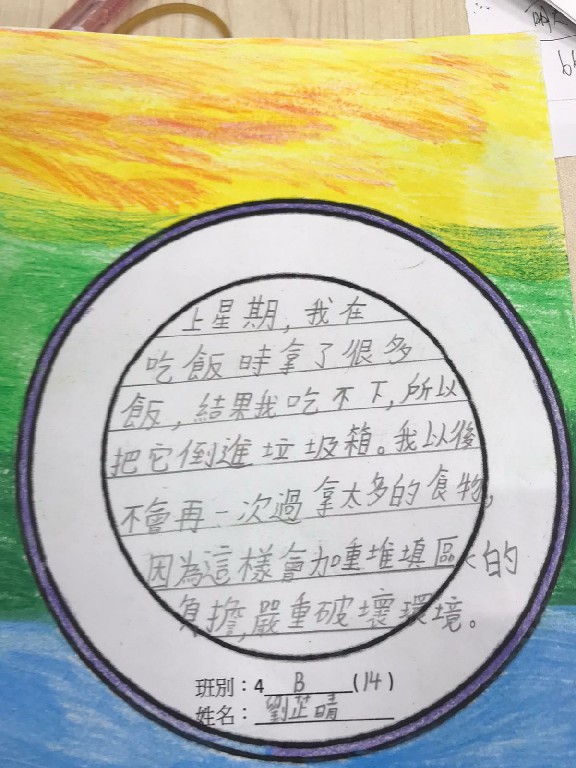 上星期,我在
吃飯時拿了很多
飯,結果我吃不下,所以
把它倒進垃圾箱。我以後
不會再一次過拿太多的食物,
因為這樣會加重堆填區的
負擔,嚴重破壞環境。
班別:4 B (14)
姓名:劉芷晴